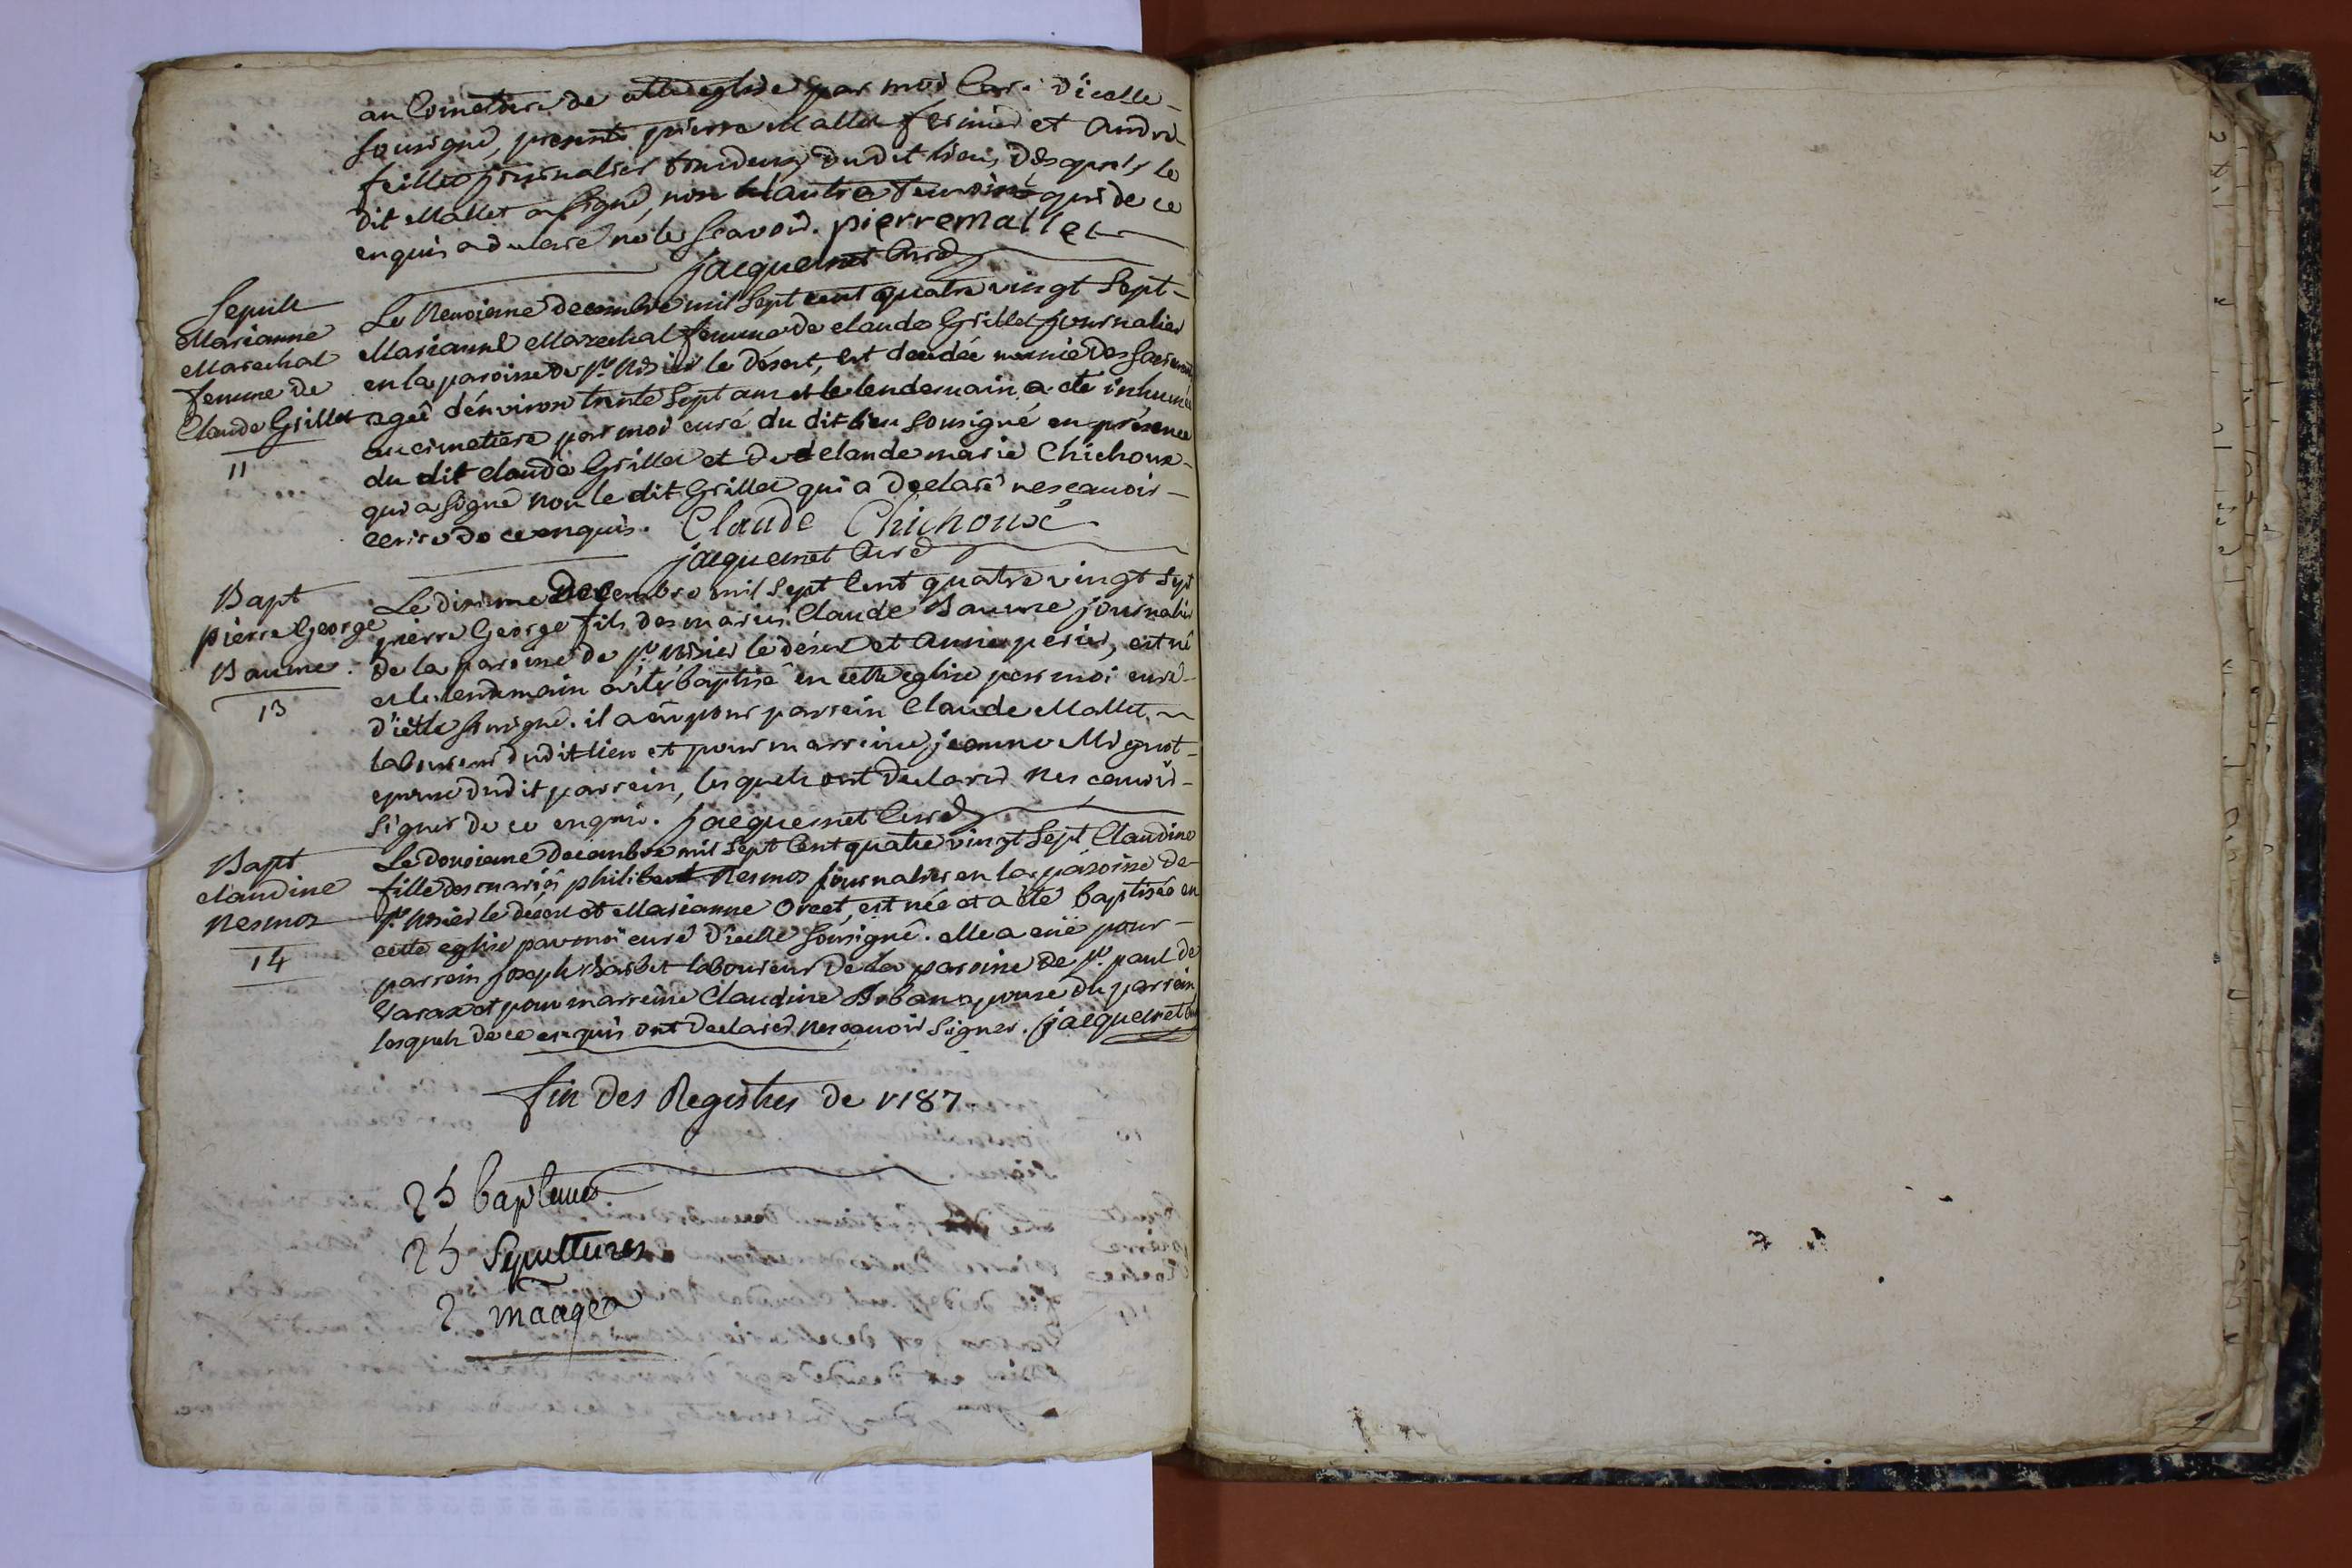 au Cimetiere de cette eglise par moi Curé d'icelle
sousigné, presents pierre Mallet fermier et André
feillet journalier tous deux dudit lieu, desquels le
dit Mallet a signé, non l'autre temoins qui de ce
enquis a declaré ne le scavoir. pierre mallet
jacquemet Curé
Sepult
Marianne
Marechal
femme de
Claude Grillet
11
Le neuvieme decembre mil sept cent quatre vingt sept
Marianne Marechal femme de claude Grillet journalier
en la paroisse de st. Nisier le désert, est decedée munie des sacremens
agée d'environ trente sept ans et le lendemain a été inhumée
au cimetiere par moi curé du dit lieu sousigné en présence
du dit claude Grillet et de claude marie Chichoux
qui a signé non le dit Grillet qui a declaré ne scavoir
ecrire de ce enquis. Claude Chichoux
jacquemet Curé
Bapt
pierre George
Baume
13
Le dixieme Decembre mil sept Cent quatre vingt sept
pierre George fils des mariés Claude Baume journalier
de la paroisse de st. nisier le désert et Anne perier, est né
et le lendemain a été baptisé en cette eglise par moi curé
d'icelle sousigné. il a eu pour parrein Claude Mallet
laboureur dudit lieu et pour marreine jeanne Mignot
epouse dudit parrein, lesquels ont declaré ne scavoir
signer de ce enquis. jacquemet Curé
Bapt
claudine
nesmos
14
Le douzieme decembre mil sept Cent quatre vingt sept Claudine
fille des mariés philibert Nesmos journalier en la paroisse de
st. Nisier le désert et Marianne Orcet, est née et a été baptisée en
cette eglise par moi curé d'icelle sousigné. elle a eüe pour
parrein joseph Barbet laboureur de la paroisse de st. paul de
Varax et pour marreine Claudine Arban epouse du parrein
lesquels de ce enquis ont declaré ne scavoir signer. jacquemet
fin des Registres de 1787
25 baptemes
25 Sepultures
2 mariages